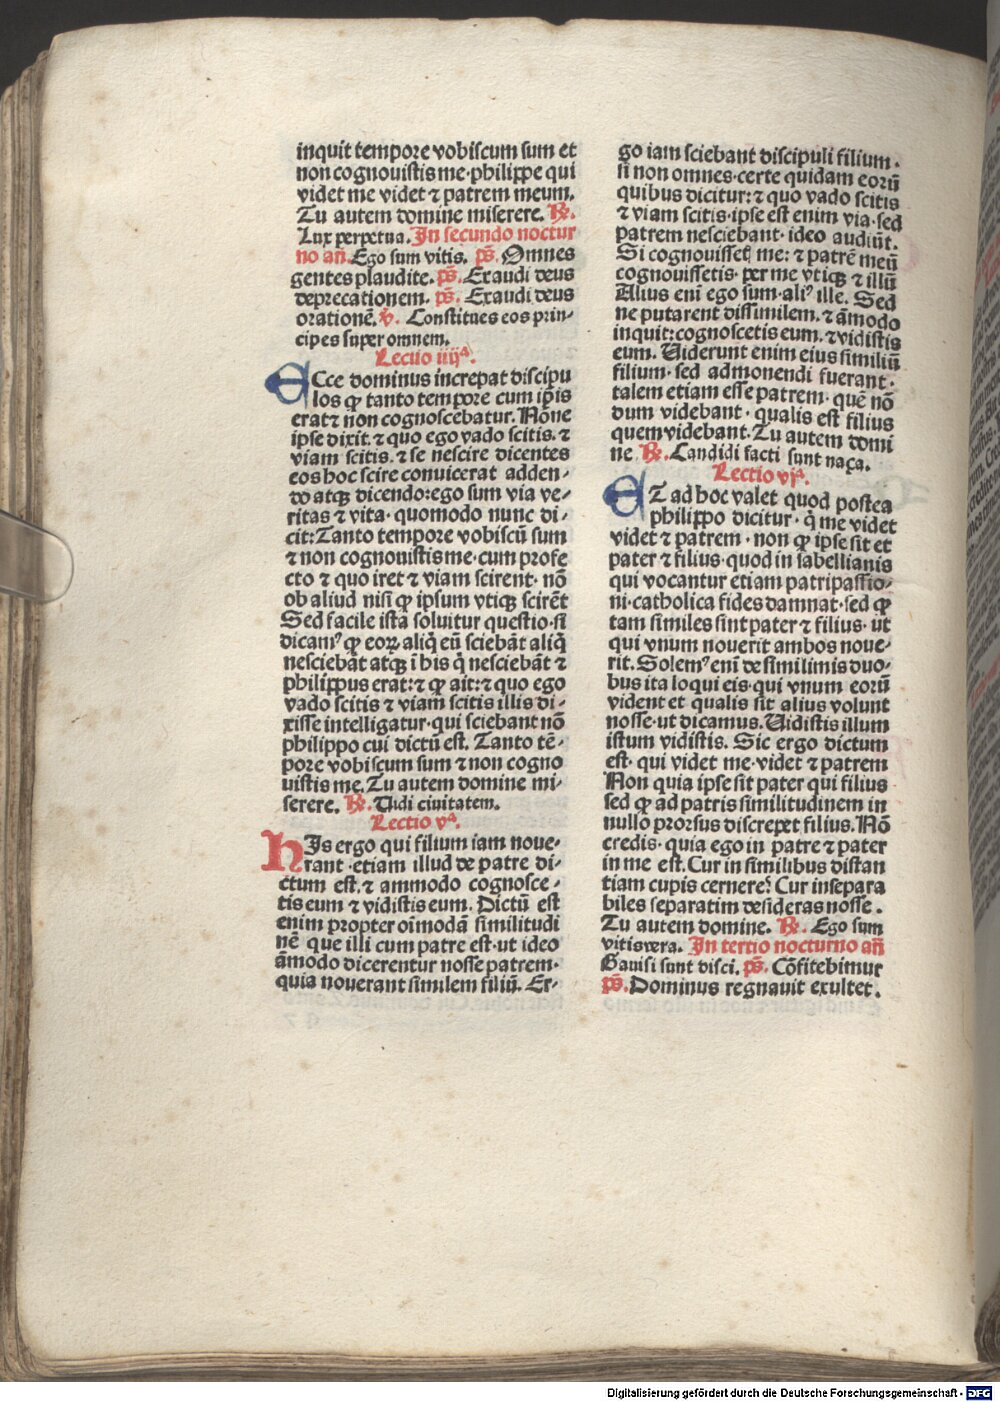 inquit tempore vobiscum sum et
non cognouistis me·philippe qui
videt me videt ⁊ patrem meum.
Tu autem domine miserere. ℟.
Lux perpetua. In secundo noctur
no añ. Ego sum vitis. ps̄. Omnes
gentes plaudite. ps̄. Exaudi deus
deprecationem. ps̄. Exaudi deus
orationē. ℣. Constitues eos prin-
cipes super omnem.
Lectio iiijᵃ.
ECce dominus increpat discipu
los ꝙ tanto tempore cum ip̄is
erat⁊ non cognoscebatur. Nōne
ipse dixit. ⁊ quo ego vado scitis. ⁊
viam scitis. ⁊ se nescire dicentes
eos hoc scire conuicerat adden-
do atqꝫ dicendo:ego sum via ve-
ritas ⁊ vita· quomodo nunc di-
cit:Tanto tempore vobiscū sum
⁊ non cognouistis me·cum profe
cto ⁊ quo iret ⁊ viam scirent· nō
ob aliud nisi ꝙ ipsum vtiqꝫ scirēt
Sed facile ista soluitur questio·si
dicamꝰ ꝙ eoꝝ aliq̇ eū sciebāt aliq̇
nesciebāt atqꝫ ī his q̇ nesciebāt ⁊
philippus erat:⁊ ꝙ ait:⁊ quo ego
vado scitis ⁊ viam scitis illis di-
xisse intelligatur·qui sciebant nō
philippo cui dictū est. Tanto tē-
pore vobiscum sum ⁊ non cogno
uistis me. Tu autem domine mi-
serere. ℟. Uidi ciuitatem.
Lectio vᵃ.
HIs ergo qui filium iam noue-
rant ·etiam illud de patre di-
ctum est. ⁊ ammodo cognosce-
tis eum ⁊ vidistis eum. Dictū est
enim propter oīmodā similitudi
nē que illi cum patre est·ut ideo
āmodo dicerentur nosse patrem·
quia nouerant similem filiū. Er-
go iam sciebant discipuli filium.
si non omnes·certe quidam eorū
quibus dicitur:⁊ quo vado scitis
⁊ viam scitis·ipse est enim via·sed
patrem nesciebant· ideo audiūt.
Si cognouissetis me: ⁊ patrē meū
cognouissetis· per me vtiqꝫ ⁊ illū
Alius eni ego sum·aliꝰ ille. Sed
ne putarent dissimilem. ⁊ āmodo
inquit:cognoscetis eum. ⁊ vidistis
eum. Uiderunt enim eius similiū
filium· sed admonendi fuerant·
talem etiam esse patrem· quē nō
dum videbant · qualis est filius
quem videbant. Tu autem domi
ne ℟. Candidi facti sunt naça.
Lectio vjᵃ.
ET ad hoc valet quod postea
philippo dicitur · q̇ me videt
videt ⁊ patrem · non ꝙ ipse sit et
pater ⁊ filius·quod in sabellianis
qui vocantur etiam patripassio-
ni·catholica fides damnat·sed ꝙ
tam similes sint pater ⁊ filius· ut
qui vnum nouerit ambos noue-
rit. Solemꝰ enī de simillimis duo-
bus ita loqui eis·qui vnum eorū
vident et qualis sit alius volunt
nosse·ut dicamus. Uidistis illum
istum vidistis. Sic ergo dictum
est· qui videt me·videt ⁊ patrem
Non quia ipse sit pater qui filius
sed ꝙ ad patris similitudinem in
nullo prorsus discrepet filius. Nō
credis· quia ego in patre ⁊ pater
in me est. Cur in similibus distan
tiam cupis cernere? Cur insepara
biles separatim desideras nosse.
Tu autem domine. ℟. Ego sum
vitis vera. In tertio nocturno añ
Gauisi sunt disci. ps̄. Cōfitebimur
ps̄. Dominus regnauit exultet.
Digitalisierung gefördert durch die Deutsche Forschungsgemeinschaft - DFG